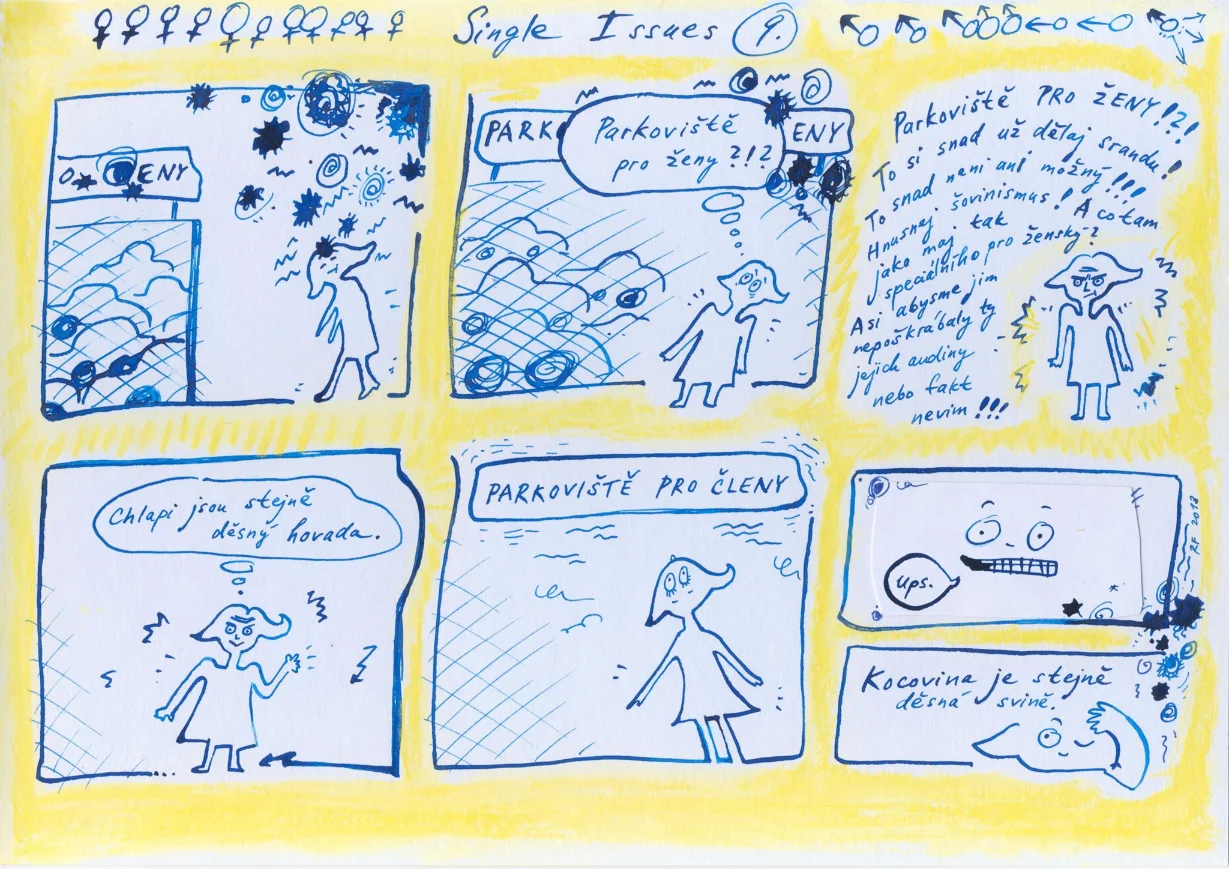 Single Issues 9.
O ENY
PARK ENY
Parkoviště
pro ženy ?!?
Parkoviště PRO ŽENY!?!
To si snad už dělaj srandu!
To snad neni ani možný!!!
Hnusnej šovinismus! A co tam
jako maj tak
speciálního pro ženský?
Asi abysme jim
nepoškrábaly ty
jejich audiny
nebo fakt
nevim!!!
Chlapi jsou stejně
děsný hovada.
PARKOVIŠTĚ PRO ČLENY
Ups.
RF 2018
Kocovina je stejně
děsná svině.